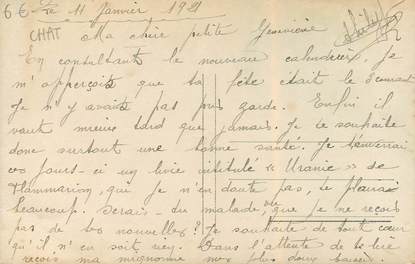 6€ le 11 Janvier 1921
CHAT Ma chère petite Geneviève
En consultant le nouveau calendrier, je
m'apperçois que ta fête était le 3 courant
Je n'y avais pas pris garde. Enfin il
vaut mieux tard que jamais. Je te souhaite
donc surtout une bonne santé. Je t'enverrai
ces jours-ci un livre intitulé « Uranie » de
Flammarion, qui je n'en doute pas, te plaira
beaucoup. Serais-tu malade, que je ne reçois
pas de tes nouvelles? Je souhaite de tout cœur
qu'il n'en soit rien. Dans l'attente de te lire
reçois ma mignonne mes plus doux baisers.